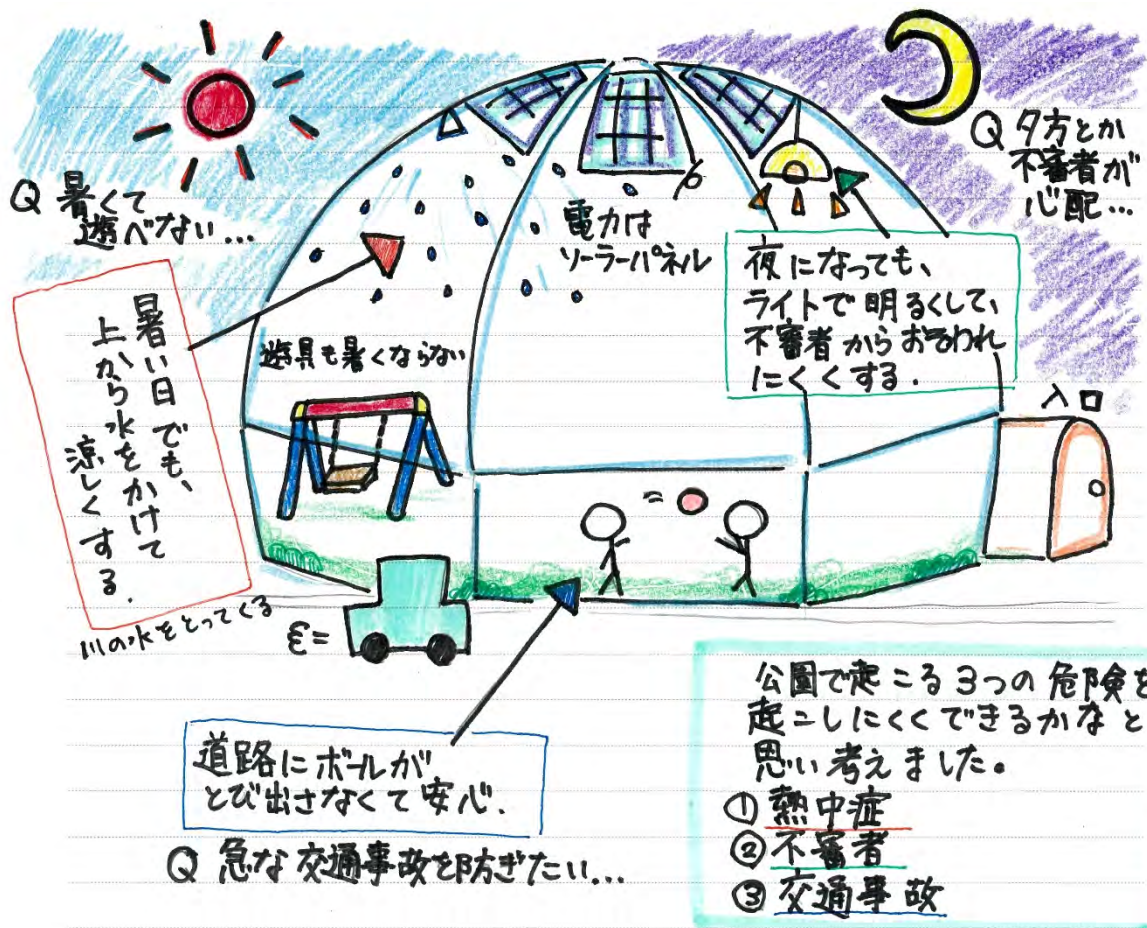 Q 暑くて
遊べない…
暑い日でも、
上から水をかけて
涼しくする.
川の水をとってくる
遊具も暑くならない
電力は
ソーラーパネル
Q 夕方とか
不審者が
心配…
夜になっても、
ライトで明るくして、
不審者からおそわれ
にくくする.
入口
道路にボールが
とび出さなくて安心.
Q 急な交通事故を防ぎたい…
公園で起こる3つの危険を
起こしにくくできるかなと
思い考えました。
① 熱中症
② 不審者
③ 交通事故